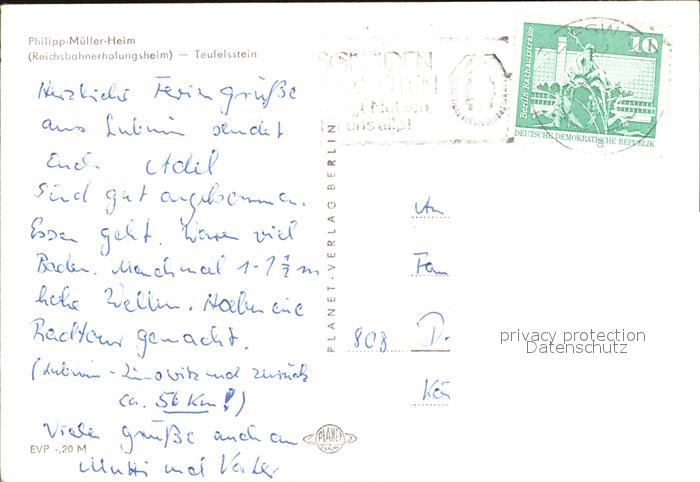 Philipp-Müller-Heim
(Reichsbahnerholungsheim) — Teufelsstein
Herzliche Feriengrüße
aus Lubmin sendet
Euch Adil
Sind gut angekommen.
Essen geht. Waren viel
Baden. Manchmal 1-1 ½ m
hohe Wellen. Haben eine
Radtour gemacht.
(Lubmin - Zinowitz und zurück
ca. 56 Km!)
Viele grüße auch an
Mutti und Vater
EVP -,20 M
PLANET-VERLAG BERLIN
PLANET
Nutzen
uns alle!
10
Berlin, Rathausstraße
DEUTSCHE DEMOKRATISCHE REPUBLIK
An
Fam
808 D.
privacy protection
Datenschutz